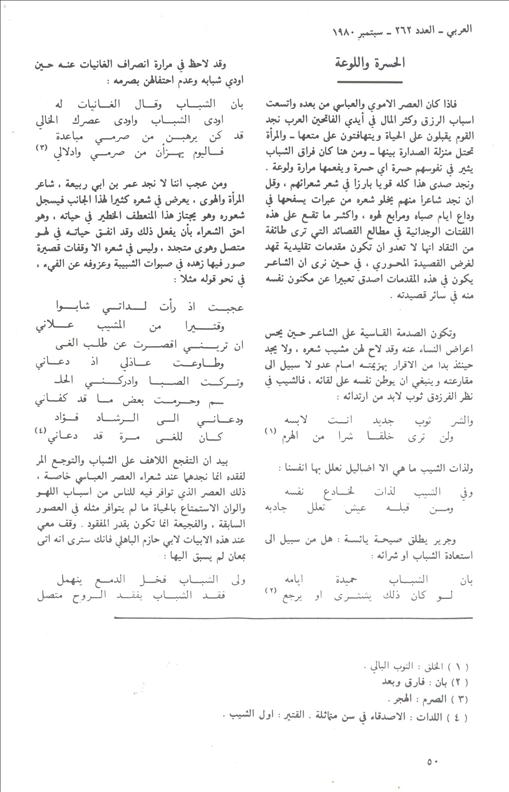 العربي - العدد ٢٦٢ - سبتمبر ١٩٨٠
الحسرة واللوعة
فاذا كان العصر الاموي والعباسي من بعده واتسعت
اسباب الرزق وكثر المال في أيدي الفاتحين العرب نجد
القوم يقبلون على الحياة ويتهافتون على متعها - والمرأة
تحتل منزلة الصدارة بينها - ومن هنا كان فراق الشباب
يثير في نفوسهم حسرة اي حسرة ويفعمها مرارة ولوعة .
ونجد صدى هذا كله قويا بارزا في شعر شعرائهم ، وقل
ان نجد شاعرا منهم يخلو شعره من عبرات يسفحها في
وداع ايام صباه ومرابع لهوه ، واكثر ما تقع على هذه
اللفتات الوجدانية في مطالع القصائد التي ترى طائفة
من النقاد انها لا تعدو ان تكون مقدمات تقليدية تمهد
لغرض القصيدة المحوري ، في حين نرى ان الشاعر
يكون في هذه المقدمات اصدق تعبيرا عن مكنون نفسه
منه في سائر قصيدته .
وتكون الصدمة القاسية على الشاعر حين يحس
اعراض النساء عنه وقد لاح لهن مشيب شعره ، ولا يجد
حينئذ بدا من الاقرار بهزيمته امام عدو لا سبيل الى
مقارعته وينبغي ان يوطن نفسه على لقائه ، فالشيب في
نظر الفرزدق ثوب لابد من ارتدائه :
والشر ثوب جديد انت لابسه
ولن ترى خلقا شرا من الهرم (١)
ولذات الشيب ما هي الا اضاليل نعلل بها انفسنا :
وفي الشيب لذات لخادع نفسه
ومن قبله عيش تعلل جادبه
وجرير يطلق صيحة يائسة : هل من سبيل الى
استعادة الشباب او شرائه :
بان الشباب حميدة ايامه
لو كان ذلك يشترى او يرجع (٢)
وقد لاحظ في مرارة انصراف الغانيات عنه حين
اودي شبابه وعدم احتفالهن بصرمه :
بان الشباب وقال الغانيات له
اودى الشباب واودى عصرك الخالي
قد كن يرهبن من صرمي مباعدة
فاليوم يهزأن من صرمي وادلالي (٣)
ومن عجب اننا لا نجد عمر بن ابي ربيعة ، شاعر
المرأة والهوى ، يعرض في شعره كثيرا لهذا الجانب فيسجل
شعوره وهو يجتاز هذا المنعطف الخطير في حياته ، وهو
احق الشعراء بأن يفعل ذلك وقد انفق حياته في لهو
متصل وهوى متجدد ، وليس في شعره الا وقفات قصيرة
صور فيها زهده في صبوات الشبيبة وعزوفه عن الفيء ،
في نحو قوله مثلا :
عجبت اذ رأت لداتي شابوا
وقتيرا من المشيب علاني
ان تريني اقصرت عن طلب الغى
وطاوعت عاذلي اذ دعاني
وتركت الصبا وادركني الحلـ
ـم وحرمت بعض ما قد كفاني
ودعاني الى الرشاد فؤاد
كان للغى مرة قد دعاني (٤)
بيد ان التفجع اللاهف على الشباب والتوجع المر
لفقده انما نجدهما عند شعراء العصر العباسي خاصة ،
ذلك العصر الذي توافر فيه للناس من اسباب اللهو
والوان الاستمتاع بالحياة ما لم يتوافر مثله في العصور
السابقة ، والفجيعة انما تكون بقدر المفقود . وقف معي
عند هذه الابيات لابي حازم الباهلي فانك سترى انه اتى
بمعان لم يسبق اليها :
ولى الشباب فخل الدمع ينهمل
فقد الشباب بفقد الروح متصل
( ١ ) الخلق : الثوب البالي .
(٢) بان : فارق وبعد
(٣) الصرم : الهجر .
( ٤ ) اللدات : الاصدقاء في سن متماثلة . القتير : اول الشيب .
٥٠